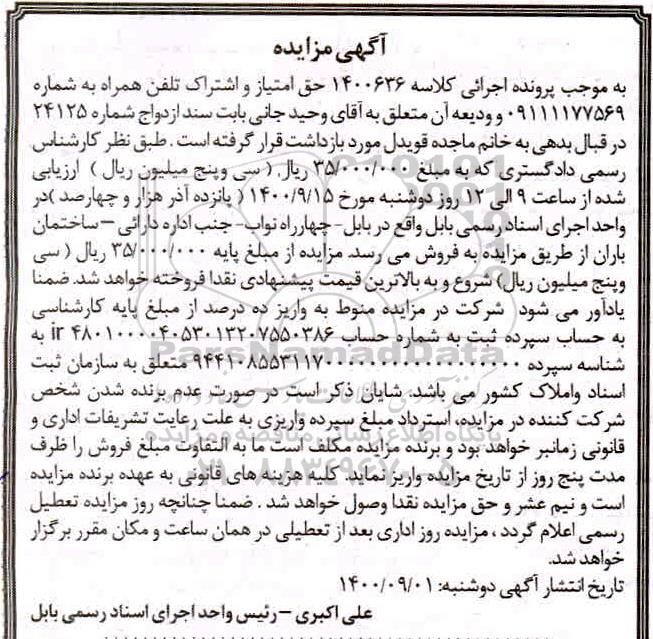 آگهی مزایده
به موجب پرونده اجرائی کلاسه ۱۴۰۰۶۳۶ حق امتیاز و اشتراک تلفن همراه به شماره
۰۹۱۱۱۱۷۷۵۶۹ و ودیعه آن متعلق به آقای وحید جانی بابت سند ازدواج شماره ۲۴۱۲۵
در قبال بدهی به خانم ماجده قویدل مورد بازداشت قرار گرفته است . طبق نظر کارشناس
رسمی دادگستری که به مبلغ ۳۵/۰۰۰/۰۰۰ ریال ( سی وپنج میلیون ریال ) ارزیابی
شده از ساعت ۹ الی ۱۲ روز دوشنبه مورخ ۱۴۰۰/۹/۱۵ ( پانزده آذر هزار و چهارصد )در
واحد اجرای اسناد رسمی بابل واقع در بابل- چهارراه نواب- جنب اداره دارائی –ساختمان
باران از طریق مزایده به فروش می رسد. مزایده از مبلغ پایه ۳۵/۰۰۰/۰۰۰ ریال ( سی
وپنج میلیون ریال) شروع و به بالاترین قیمت پیشنهادی نقدا فروخته خواهد شد. ضمنا
یادآور می شود شرکت در مزایده منوط به واریز ده درصد از مبلغ پایه کارشناسی
به حساب سپرده ثبت به شماره حساب ir ۴۸۰۱۰۰۰۰۴۰۵۳۰۱۳۲۰۷۵۵۰۳۸۶ به
شناسه سپرده متعلق به سازمان ثبت
اسناد واملاک کشور می باشد. شایان ذکر است در صورت عدم برنده شدن شخص
شرکت کننده در مزایده، استرداد مبلغ سپرده واریزی به علت رعایت تشریفات اداری و
قانونی زمانبر خواهد بود و برنده مزایده مکلف است ما به التفاوت مبلغ فروش را ظرف
مدت پنج روز از تاریخ مزایده واریز نماید. کلیه هزینه های قانونی به عهده برنده مزایده
است و نیم عشر و حق مزایده نقدا وصول خواهد شد . ضمنا چنانچه روز مزایده تعطیل
رسمی اعلام گردد ، مزایده روز اداری بعد از تعطیلی در همان ساعت و مکان مقرر برگزار
خواهد شد.
تاریخ انتشار آگهی دوشنبه: ۱۴۰۰/۰۹/۰۱
علی اکبری – رئیس واحد اجرای اسناد رسمی بابل
ParsNamadData
پایگاه اطلاع رسانی مناقصه و مزایده
۰۲۱-۸۸۳۴۹۶۷۰-۵